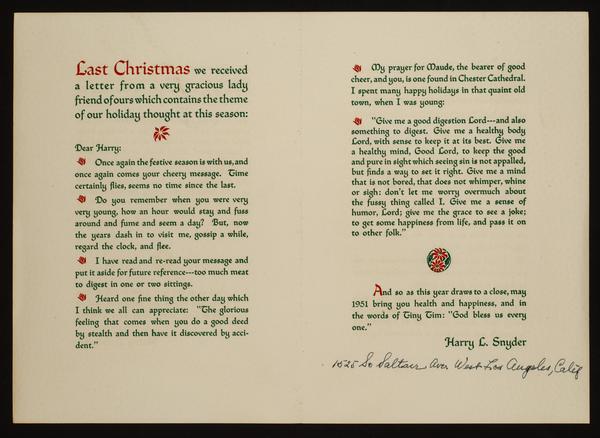 Last Christmas we received
a letter from a very gracious lady
friend of ours which contains the theme
of our holiday thought at this season:
Dear Harry:
Once again the festive season is with us, and
once again comes your cheery message. Time
certainly flies, seems no time since the last.
Do you remember when you were very
very young, how an hour would stay and fuss
around and fume and seem a day? But, now
the years dash in to visit me, gossip a while,
regard the clock, and flee.
I have read and re-read your message and
put it aside for future reference---too much meat
to digest in one or two sittings.
Heard one fine thing the other day which
I think we all can appreciate: "The glorious
feeling that comes when you do a good deed
by stealth and then have it discovered by acci-
dent."
My prayer for Maude, the bearer of good
cheer, and you, is one found in Chester Cathedral.
I spent many happy holidays in that quaint old
town, when I was young:
"Give me a good digestion Lord---and also
something to digest. Give me a healthy body
Lord, with sense to keep it at its best. Give me
a healthy mind, Good Lord, to keep the good
and pure in sight which seeing sin is not appalled,
but finds a way to set it right. Give me a mind
that is not bored, that does not whimper, whine
or sigh: don't let me worry overmuch about
the fussy thing called I. Give me a sense of
humor, Lord; give me the grace to see a joke;
to get some happiness from life, and pass it on
to other folk."
And so as this year draws to a close, may
1951 bring you health and happiness, and in
the words of Tiny Tim: "God bless us every
one."
Harry L. Snyder
1525 So Saltair Ave West Los Angeles, Calif